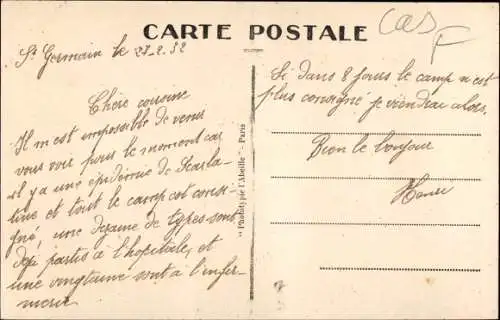 CARTE POSTALE
Cas
F
St Germain le 27-2.32
Chère cousine
Il m'est impossible de venir
vous voir pour le moment car
il y a une épidémie de Scarla-
tine et tout le camp est consi-
gné, une dizaine de types sont
déjà partis à l'hopitale, et
une vingtaine sont à l'infir-
merie
"Phototypie l'Abeille" - Paris
Si dans 8 jours le camp n'est
plus consigné je viendrai alors.
Bien le bonjour
Henri